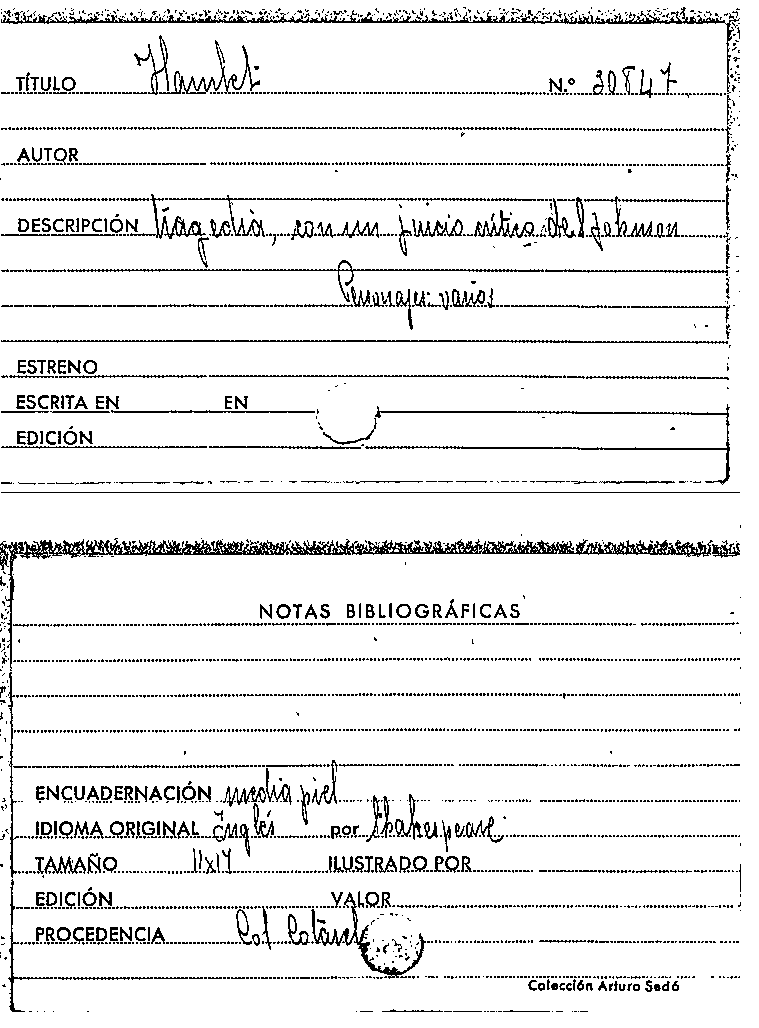 TÍTULO Hamlet N.º 30847
AUTOR
DESCRIPCIÓN tragedia, con un juicio crítico de S Johnson
Personajes: varios
ESTRENO
ESCRITA EN EN
EDICIÓN
NOTAS BIBLIOGRÁFICAS
ENCUADERNACIÓN media piel
IDIOMA ORIGINAL Inglés por Shakespeare
TAMAÑO 11x17 ILUSTRADO POR
EDICIÓN VALOR
PROCEDENCIA Col
Colección Arturo Sedó